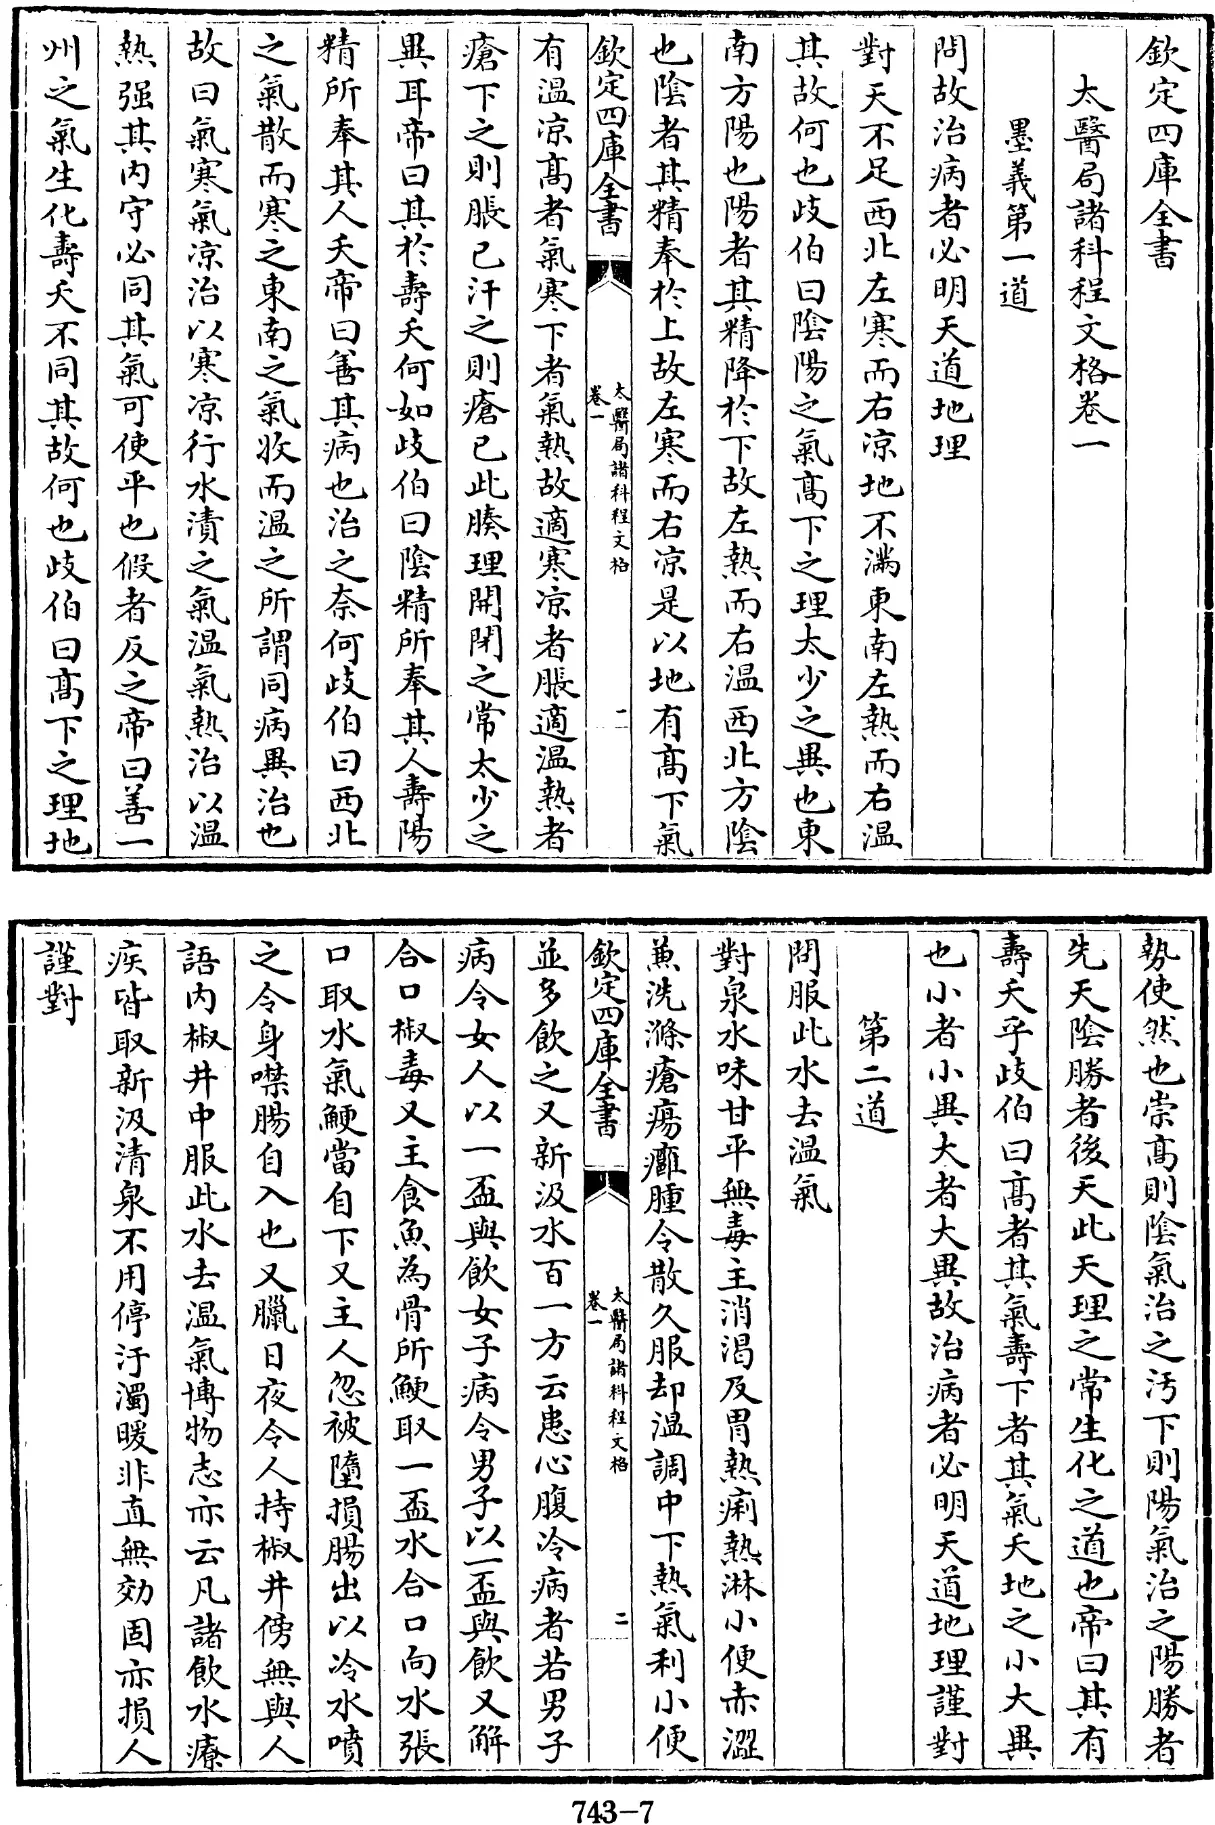 欽定四庫全書
太醫局諸科程文格卷一
墨義第一道
問故治病者必明天道地理
對天不足西北左寒而右涼地不滿東南左熱而右温
其故何也歧伯曰陰陽之氣髙下之理太少之異也東
南方陽也陽者其精降於下故左熱而右温西北方陰
也陰者其精奉於上故左寒而右涼是以地有髙下氣
欽定四庫全書
太醫局諸科程文格
卷一
一
有温凉髙者氣寒下者氣熱故適寒凉者脹適温熱者
瘡下之則脹已汗之則瘡已此腠理開閉之常太少之
異耳帝曰其於壽夭何如歧伯曰陰精所奉其人壽陽
精所奉其人夭帝曰善其病也治之奈何歧伯曰西北
之氣散而寒之東南之氣收而温之所謂同病異治也
故曰氣寒氣凉治以寒凉行水漬之氣温氣熱治以温
熱强其内守必同其氣可使平也假者反之帝曰善一
州之氣生化壽夭不同其故何也歧伯曰髙下之理地
勢使然也崇髙則陰氣治之汚下則陽氣治之陽勝者
先天陰勝者後天此天理之常生化之道也帝曰其有
壽夭乎歧伯曰髙者其氣壽下者其氣夭地之小大異
也小者小異大者大異故治病者必明天道地理謹對
第二道
問服此水去温氣
對泉水味甘平無毒主消渴反胃熱痢熱淋小便赤澀
兼洗滌瘡瘍癰腫令散久服却温調中下熱氣利小便
欽定四庫全書
太醫局諸科程文格
卷一
二
並多飲之又新汲水百一方云患心腹冷病者若男子
病令女人以一盃與飲女子病令男子以一盃與飲又解
合口椒毒又主食魚為骨所鯁取一盃水合口向水張
口取水氣鯁當自下又主人忽被墮損腸出以冷水噴
之令身噤腸自入也又臘日夜令人持椒井傍無與人
語内椒井中服此水去温氣博物志亦云凡諸飲水療
疾皆取新汲清泉不用停汙濁暖非直無効固亦損人
謹對
743-7